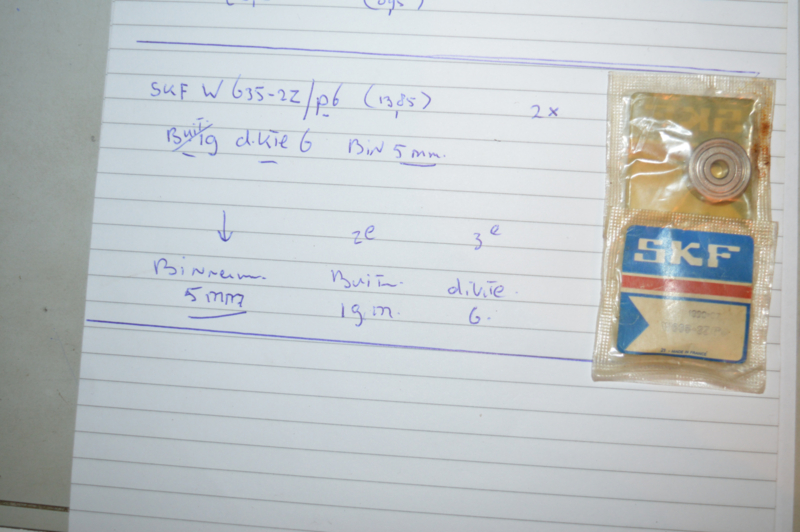 SKF W 635-2Z/p6 (13,85) 2x
Buit. 19 dikte 6 Bin 5 mm.
↓ 2e 3e
Binnen. Buit. dikte.
5 mm 19 m. 6.
SKF